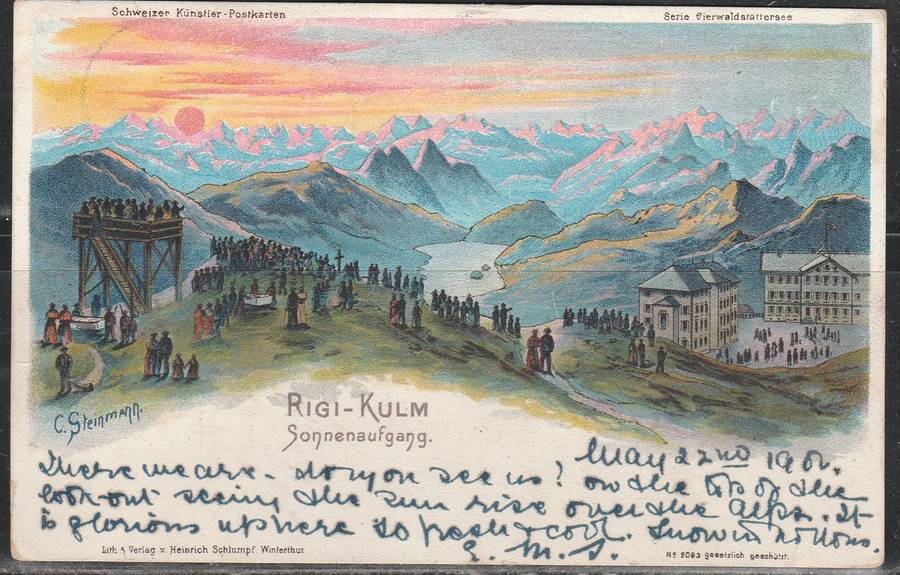 Schweizer Künstler-Postkarten
Serie Vierwaldstättersee
C. Steinmann.
RIGI-KULM
Sonnenaufgang.
May 22ND 190
There we are - do you see us? on the top of the
look out seeing the sun rise over the Alps. It
is glorious up here so fresh & cool. Snow in
E. M. S.
Lith. & Verlag v. Heinrich Schlumpf. Winterthur
No 2063 gesetzlich geschützt.